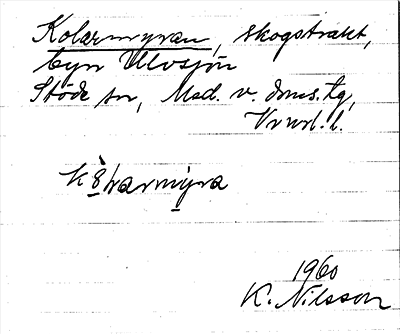 Kolarmyran, skogstrakt,
byn Ulvsjön
Stöde sn, Med. v. doms.tg,
Vrnrl. l.
1960
K. Nilsson